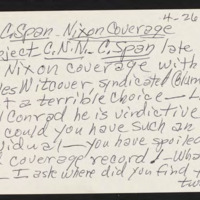 C-Span-Nixon Coverage
4-26
ject C.N.N. C. Span late
Nixon coverage with
les Witcover, syndicated Colum
t a terrible choice
Conrad he is virdictive
could you have such an
vidual - you have spoiled
coverage record - Wha
- I ask where did you find
tw